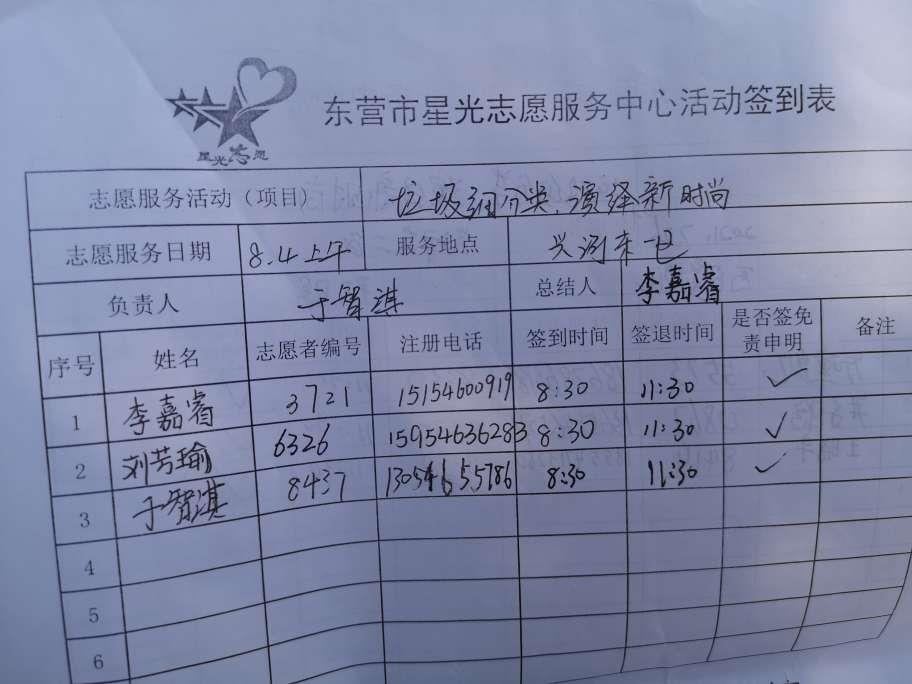 星光志愿
东营市星光志愿服务中心活动签到表
志愿服务活动（项目） 垃圾细分类，演绎新时尚
志愿服务日期 8.4上午 服务地点
负责人 于智淇 总结人 李嘉睿
序号 姓名 志愿者编号 注册电话 签到时间 签退时间 是否签免责申明 备注
1 李嘉睿 3721 15154600919 8:30 11:30 ✓
2 刘芳瑜 6326 15954636283 8:30 11:30 ✓
3 于智淇 8437 13054655786 8:30 11:30 ✓
4
5
6